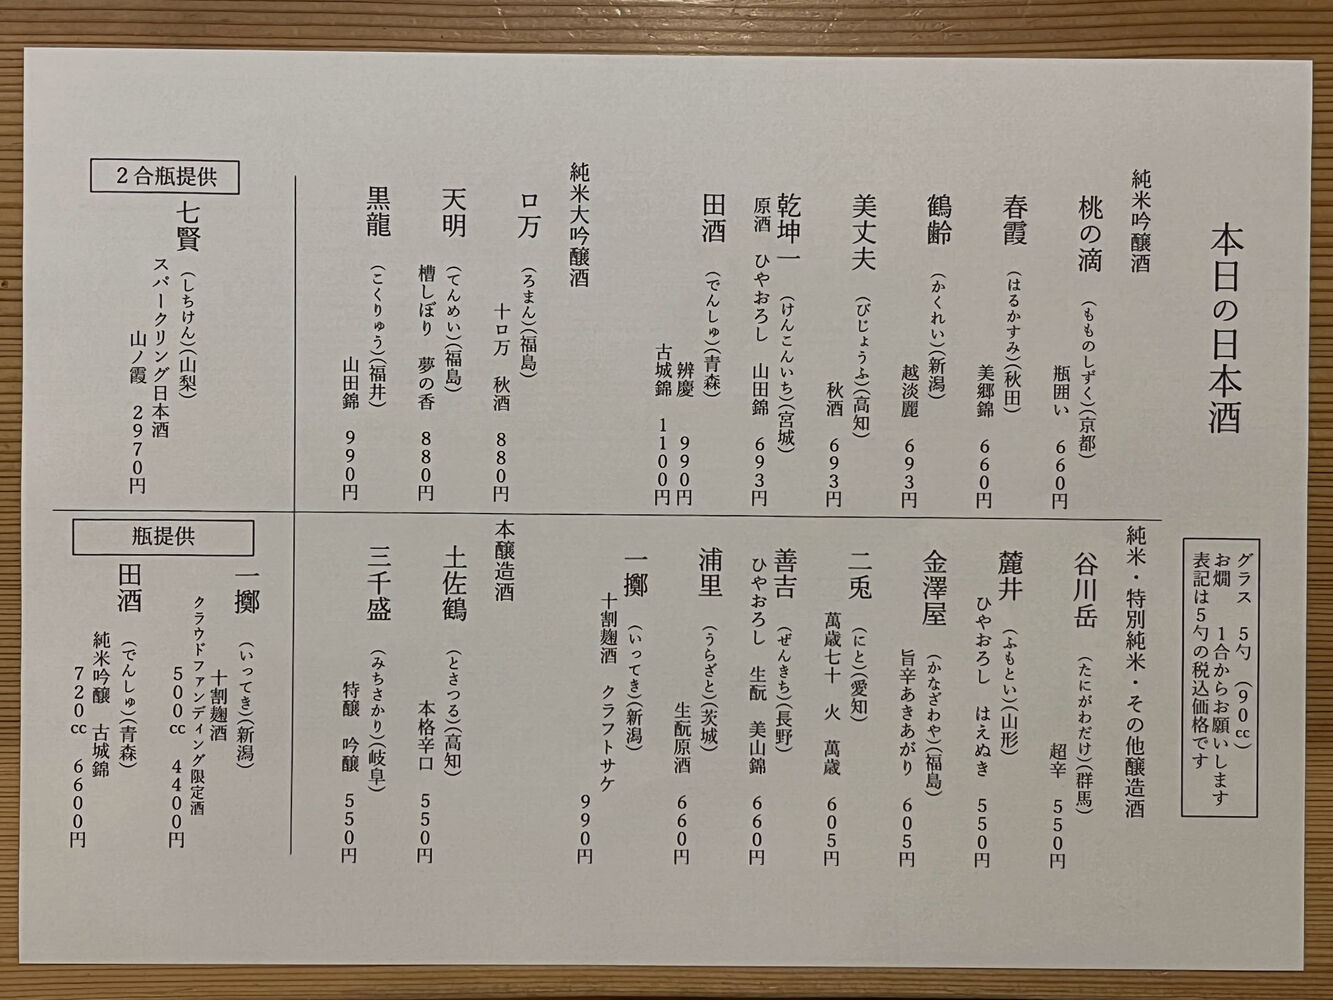 本日の日本酒
グラス　5勺　（90㏄）
お燗　1合からお願いします
表記は5勺の税込価格です
純米吟醸酒
桃の滴　（もものしずく）（京都）
瓶囲い　660円
春霞　（はるかすみ）（秋田）
美郷錦　660円
鶴齢　（かくれい）（新潟）
越淡麗　693円
美丈夫　（びじょうふ）（高知）
秋酒　693円
乾坤一　（けんこんいち）（宮城）
原酒　ひやおろし　山田錦　693円
田酒　（でんしゅ）（青森）
辨慶　990円
古城錦　1100円
純米大吟醸酒
ロ万　（ろまん）（福島）
十ロ万　秋酒　880円
天明　（てんめい）（福島）
槽しぼり　夢の香　880円
黒龍　（こくりゅう）（福井）
山田錦　990円
純米・特別純米・その他醸造酒
谷川岳　（たにがわだけ）（群馬）
超辛　550円
麓井　（ふもとい）（山形）
ひやおろし　はえぬき　550円
金澤屋　（かなざわや）（福島）
旨辛あきあがり　605円
二兎　（にと）（愛知）
萬歳七十　火　萬歳　605円
善吉　（ぜんきち）（長野）
ひやおろし　生酛　美山錦　660円
浦里　（うらざと）（茨城）
生酛原酒　660円
一擲　（いってき）（新潟）
十割麹酒　クラフトサケ
990円
本醸造酒
土佐鶴　（とさつる）（高知）
本格辛口　550円
三千盛　（みちさかり）（岐阜）
特醸　吟醸　550円
2合瓶提供
七賢　（しちけん）（山梨）
スパークリング日本酒
山ノ霞　2970円
瓶提供
一擲　（いってき）（新潟）
十割麹酒
クラウドファンディング限定酒
500㏄　4400円
田酒　（でんしゅ）（青森）
純米吟醸　古城錦
720㏄　6600円